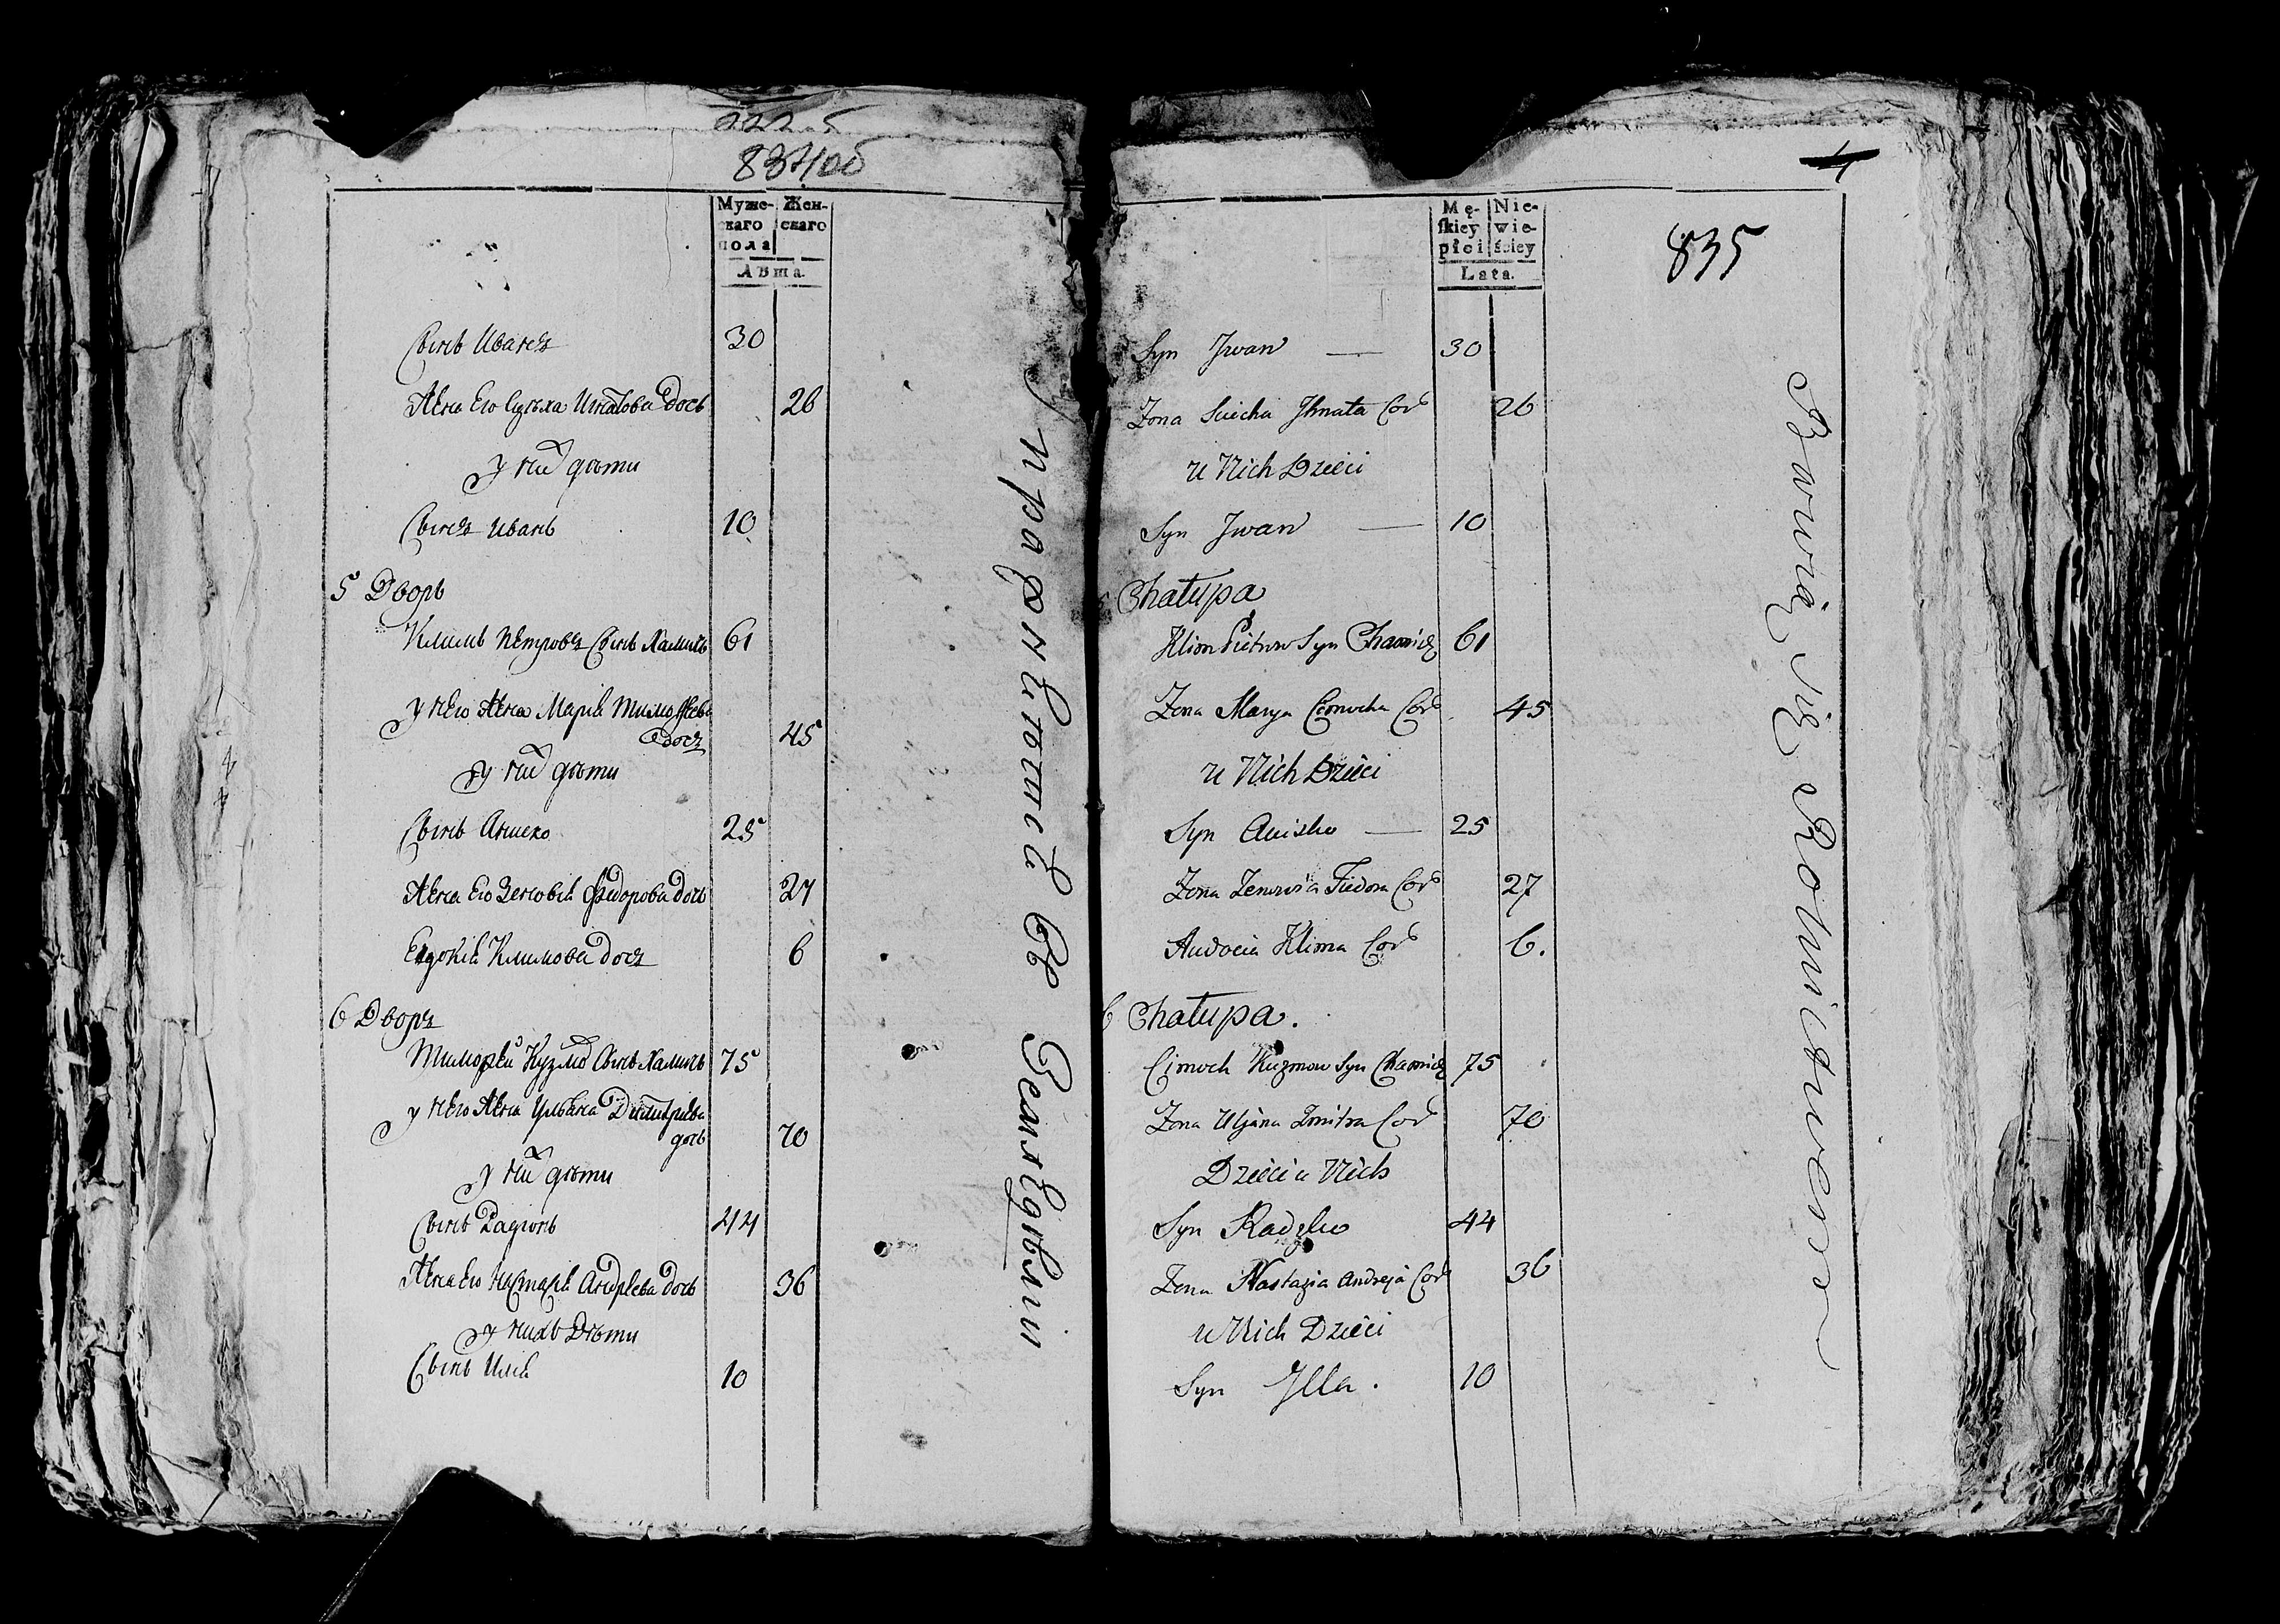 222.5
837/об
Муже-
скаго
пола
Жен-
скаго
Лѣта.
Сынъ Иванъ 30
Жена Его Сцѣха Игнатова Дочь 26
у них дѣти
Сынъ Иванъ 10
5 Дворъ
Климъ Петровъ Сынъ Хамичь 61
у Него Жена Марія Тимофѣева
дочь 45
у них дѣти
Сынъ Анишко 25
Жена Его Зеновія Фёдорова Дочь 27
Евдокія Климова Дочь 6
6 Дворъ
Тимофѣй Кузмов Сынъ Хамичь 75
у Него Жена Ульяна Димитріева
дочь 70
у них дѣти
Сынъ Радіонъ 44
Жена Его Настасія Андреева Дочь 36
у нихъ Дѣти
Сынъ Илія 10
въ Земледѣліи
4
835
Mę-
skiey
płci
Nie-
wie-
ściey
Lata.
Syn Jwan — 30
Zona Sciecha Jhnata Cor 26
u Nich Dzieci
Syn Jwan — 10
5 Chałupa
Klim Pietrow Syn Chamicz 61
Zona Marya Cimocha Cor 45
u Nich Dzieci
Syn Aniśko — 25
Zona Zenowia Fiedora Cor 27
Audocia Klima Cor 6.
6 Chałupa.
Cimoch Kuzmow Syn Chamicz 75
Zona Uljana Dmitra Cor 70
Dzieci u Nich
Syn Radzko 44
Zona Nastazia Andreja Cor 36
u Nich Dzieci
Syn Jlla. 10
Bawią się Rolnictwem